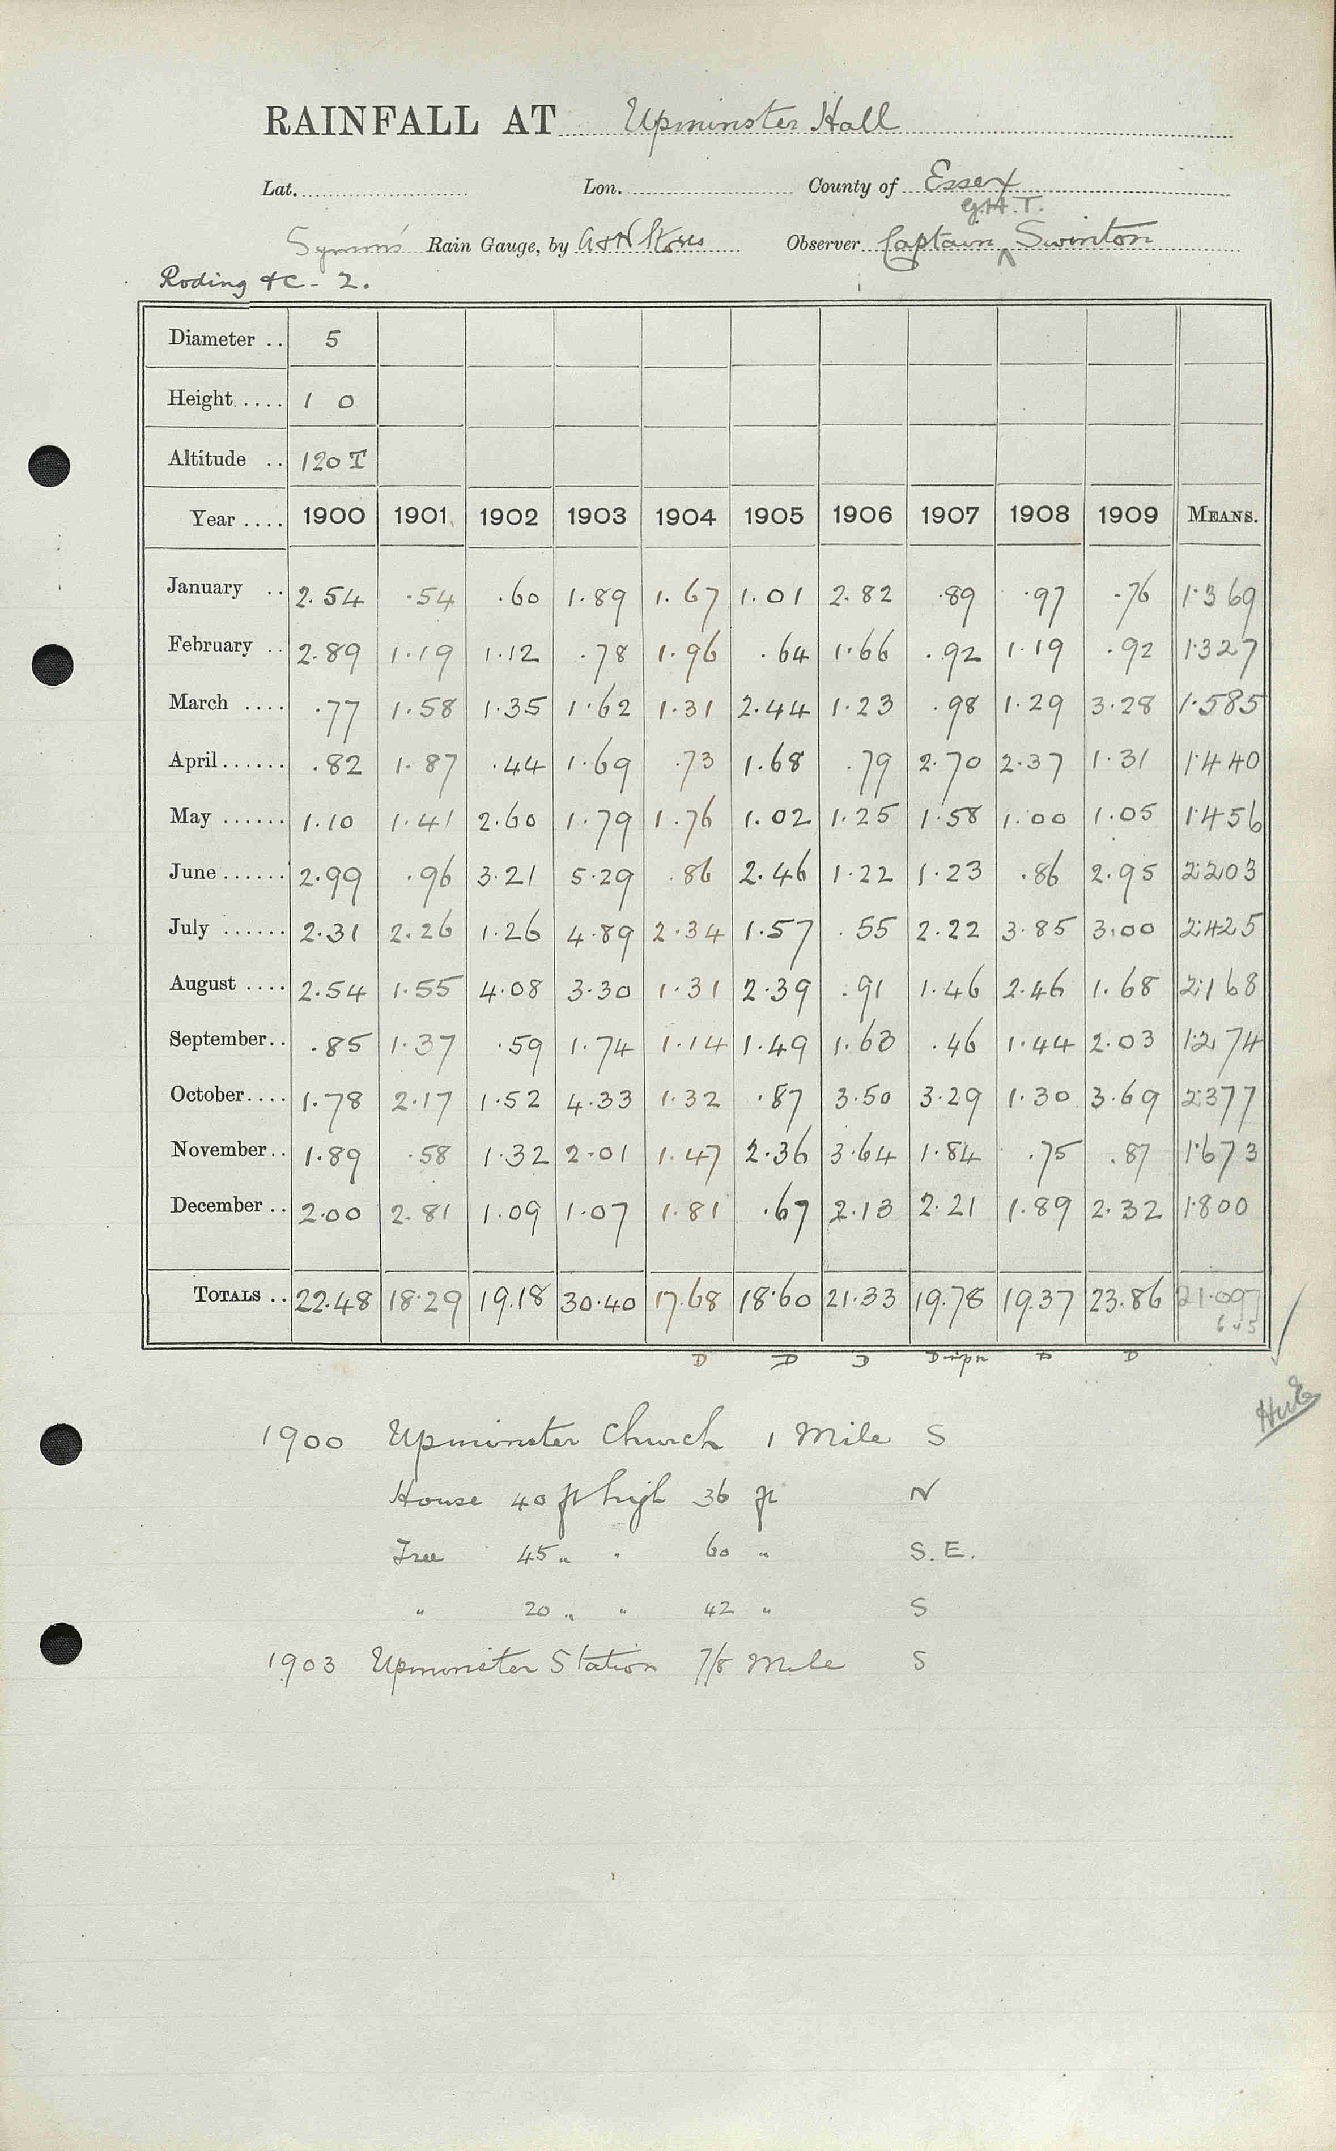 RAINFALL AT Upminster Hall
Lat. Lon. County of Essex
G.H.T.
Symons' Rain Gauge, by A & N Stores Observer Captain ^ Swinton
Roding &c - 2.
Diameter .. 5
Height .... 1 0
Altitude .. 120 T
Year .... 1900 1901 1902 1903 1904 1905 1906 1907 1908 1909 MEANS.
January .. 2.54 .54 .60 1.89 1.67 1.01 2.82 .89 .97 .76 1.369
February .. 2.89 1.19 1.12 .78 1.96 .64 1.66 .92 1.19 .92 1.327
March .... .77 1.58 1.35 1.62 1.31 2.44 1.23 .98 1.29 3.28 1.585
April...... .82 1.87 .44 1.69 .73 1.68 .79 2.70 2.37 1.31 1.440
May ...... 1.10 1.41 2.60 1.79 1.76 1.02 1.25 1.58 1.00 1.05 1.456
June...... 2.99 .96 3.21 5.29 .86 2.46 1.22 1.23 .86 2.95 2.203
July ...... 2.31 2.26 1.26 4.89 2.34 1.57 .55 2.22 3.85 3.00 2.425
August .... 2.54 1.55 4.08 3.30 1.31 2.39 .91 1.46 2.46 1.68 2.168
September.. .85 1.37 .59 1.74 1.14 1.49 1.63 .46 1.44 2.03 1.274
October.... 1.78 2.17 1.52 4.33 1.32 .87 3.50 3.29 1.30 3.69 2.377
November.. 1.89 .58 1.32 2.01 1.47 2.36 3.64 1.84 .75 .87 1.673
December .. 2.00 2.81 1.09 1.07 1.81 .67 2.13 2.21 1.89 2.32 1.800
TOTALS .. 22.48 18.29 19.18 30.40 17.68 18.60 21.33 19.78 19.37 23.86 21.097
D D D D D D
1900 Upminster Church 1 Mile S
House 40 ft high 36 ft N
Tree 45 " " 60 " S.E.
" 20 " " 42 " S
1903 Upminster Station 7/8 Mile S